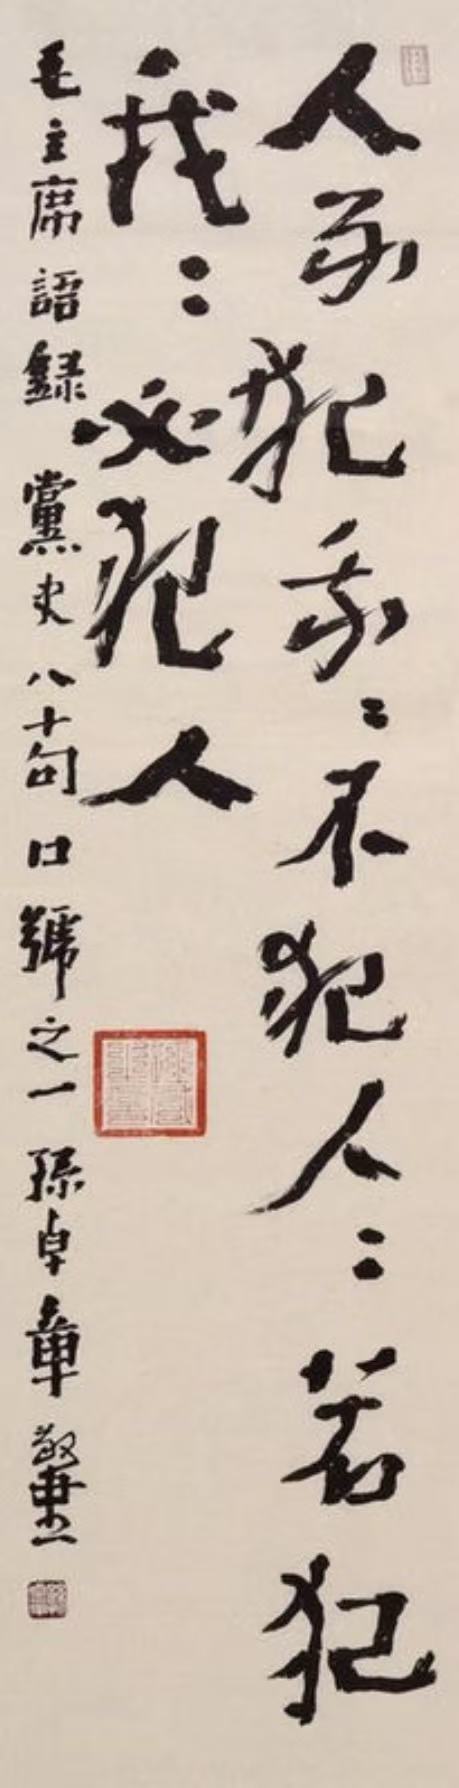 人不犯我〻不犯人〻若犯
我〻必犯人
毛主席語録 黨史八十句口號之一 孫卓章敬書